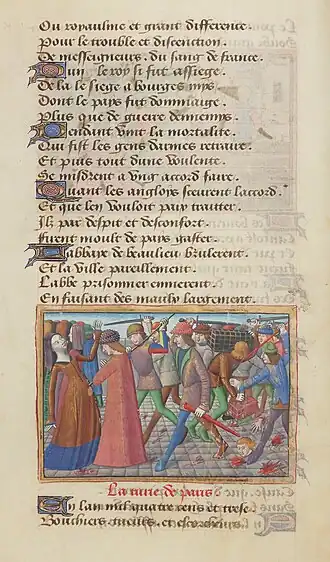 Ou royaulme et grant difference.
Pour le trouble et discention.
De messeigneurs. du sang de france.
Puis le roy si fut assiege.
De la le siege a bourges mys.
Dont le pays fut dommaige.
Plus que de guerre dennemys.
Pendant vint la mortalite.
Qui fist les gens darmes retraire.
Et puis tout dune voulente.
Se misdrent a ung accord faire.
Quant les angloys sceurent laccord.
Et que len vouloit paix traitter.
Ilz par despit et desconfort.
firent moult de pays gaster.
Labbaye de beaulieu bruslerent.
Et la ville pareillement.
Labbe prisonnier emmenerent.
En faisant des maulx largement.
La turie de paris
En lan mil quatre cens et trese.
Bouchiers. gueulx. et escorcheurs.